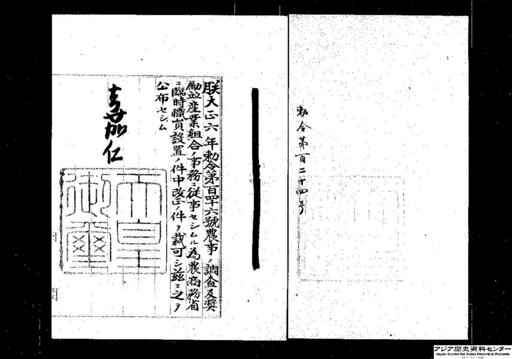 勅令第百二十四号
朕大正六年勅令第百四十六號農事ノ調査及奬
勵竝産業組合ノ事務ニ從事セシムル為農商務省
ニ臨時職員設置ノ件中改正ノ件ヲ裁可シ茲ニ之ヲ
公布セシム
嘉仁
天皇
御璽
アジア歴史資料センター
Japan Center for Asian Historical Records